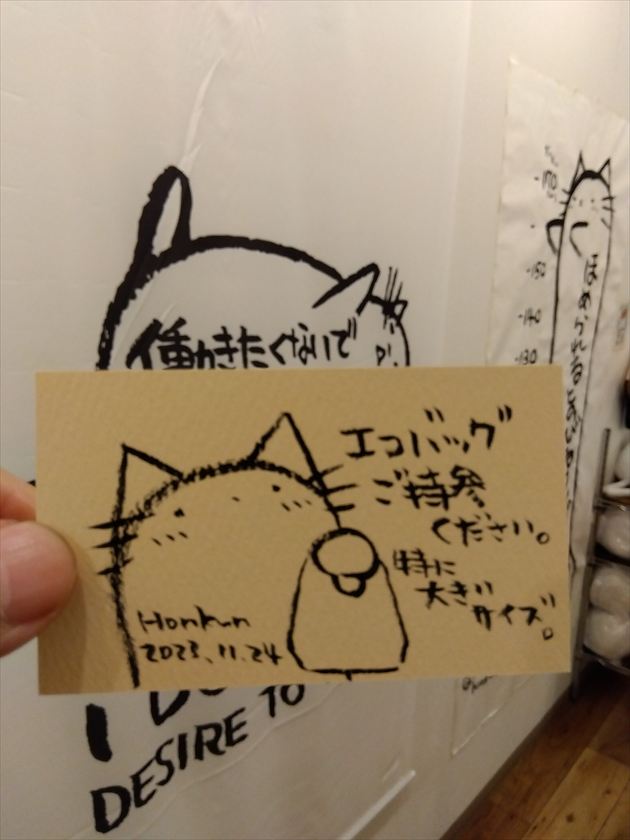 働きたくないで
エコバッグ
ご持参
ください。
特に
大きい
サイズ。
Honkun
2023.11.24
DESIRE TO
-170
-150
-140
-130
ほめられる